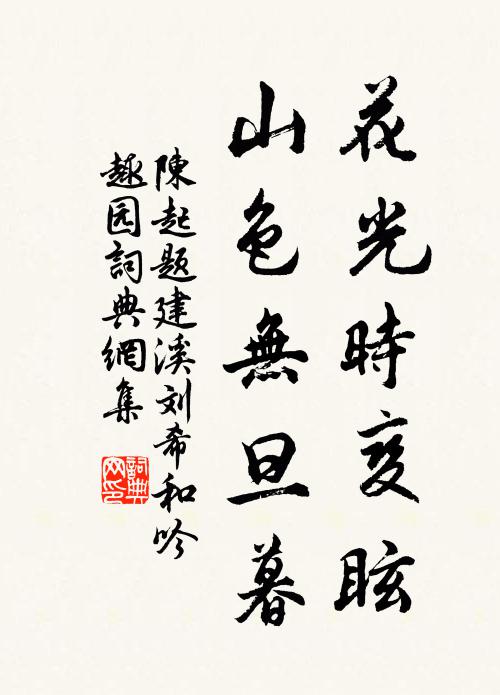 花光時变眩
山色無旦暮
陳起题建溪刘希和吟
趣园詞典網集
詞典网印